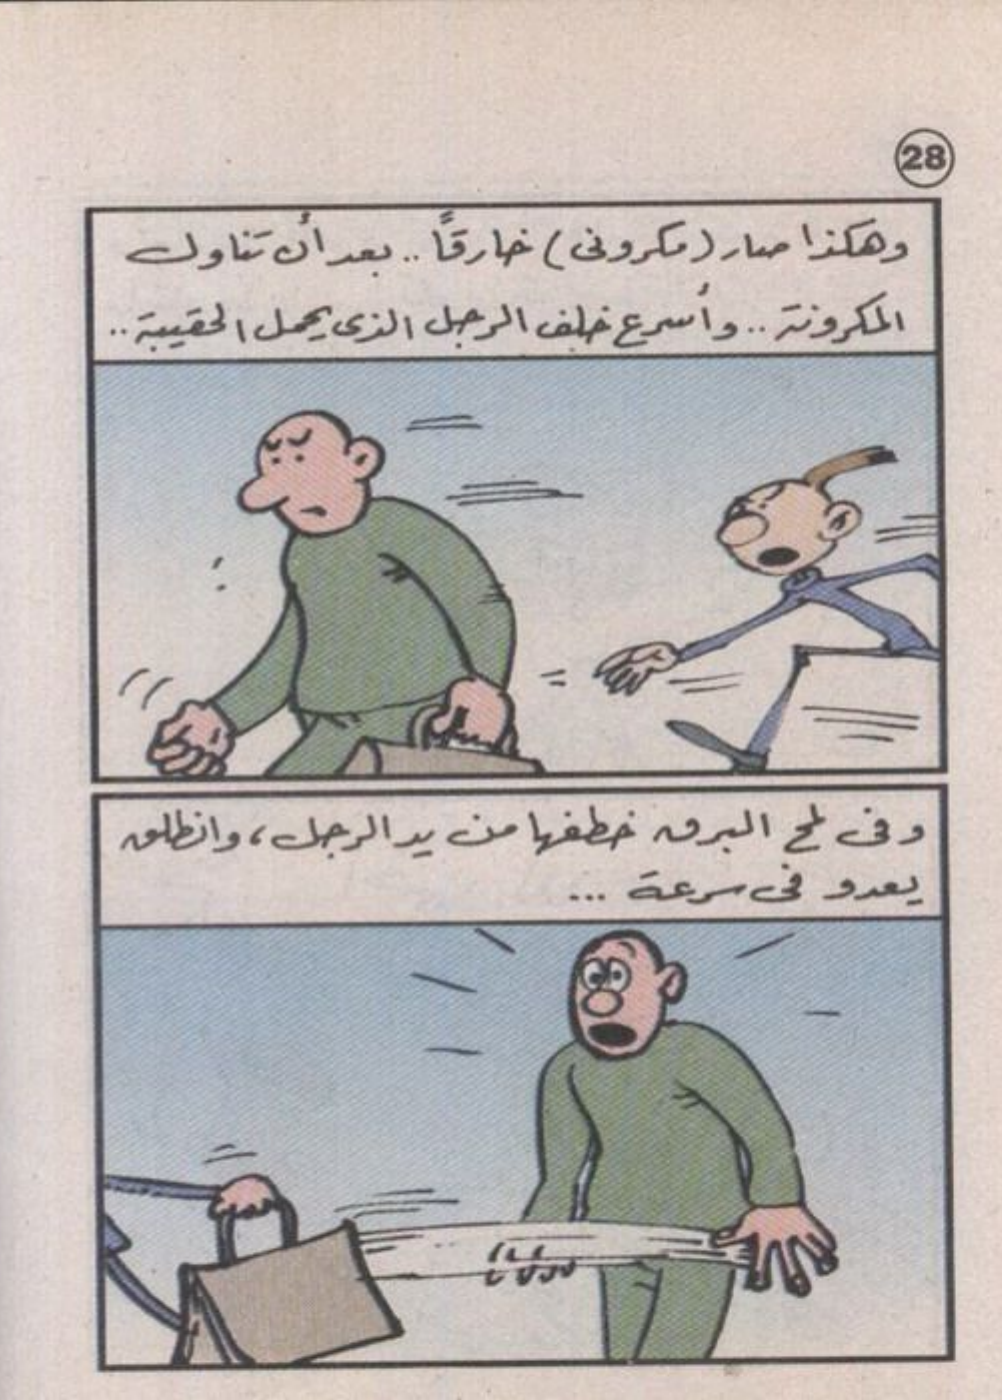 28
وهكذا صار (مكرونى) خارقًا .. بعد أن تناول
المكرونة .. وأسرع خلف الرجل الذى يحمل الحقيبة ..
وفى لمح البرق خطفها من يد الرجل، وانطلق
يعدو فى سرعة ...